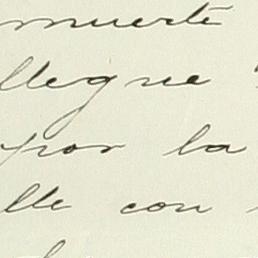 muerte
llegue
por la
lle con